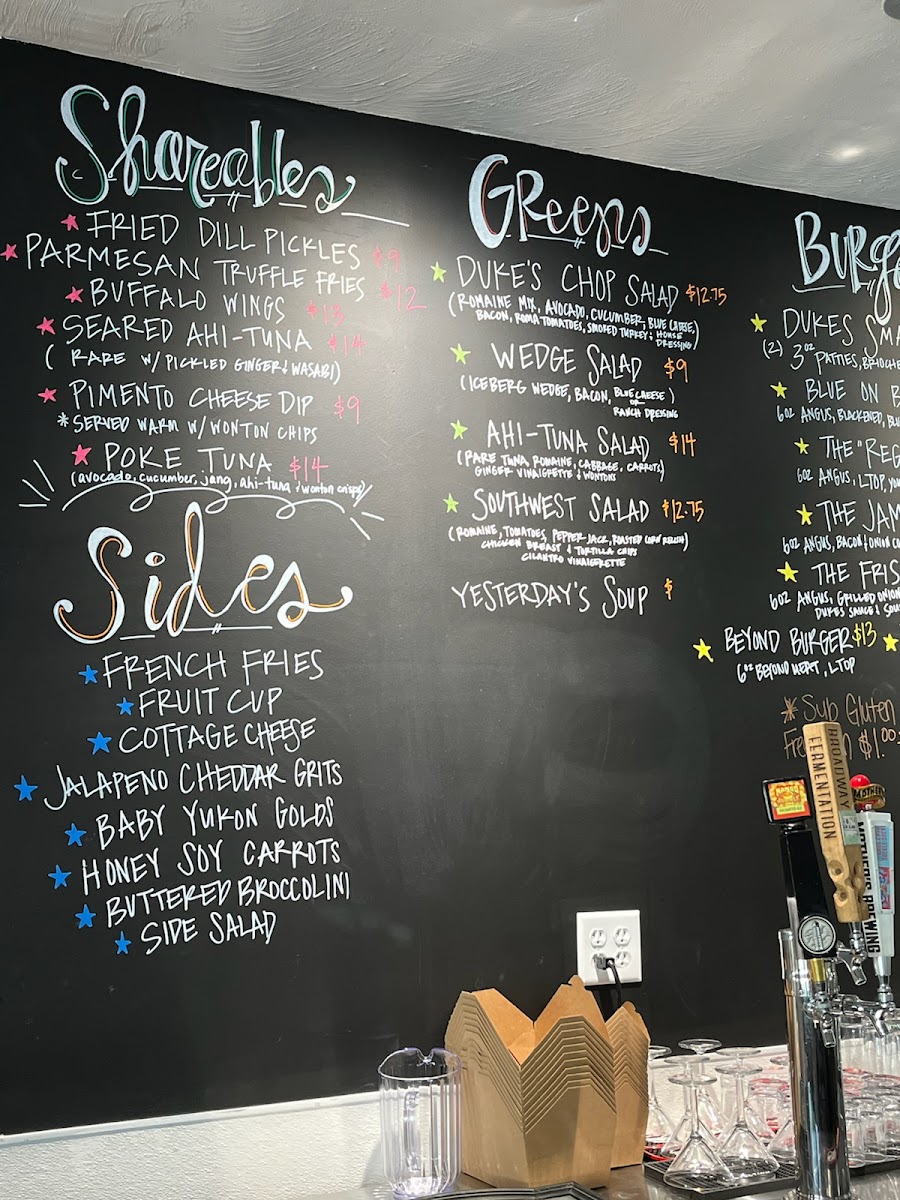 Shareables
FRIED DILL PICKLES $9
PARMESAN TRUFFLE FRIES $12
BUFFALO WINGS $13
SEARED AHI-TUNA $14
( RARE W/ PICKLED GINGER & WASABI)
PIMENTO CHEESE DIP $9
*SERVED WARM W/ WONTON CHIPS
POKE TUNA $14
(avocado, cucumber, jang, ahi-tuna & wonton crisps)
Sides
FRENCH FRIES
FRUIT CUP
COTTAGE CHEESE
JALAPENO CHEDDAR GRITS
BABY YUKON GOLDS
HONEY SOY CARROTS
BUTTERED BROCCOLINI
SIDE SALAD
GReens
DUKE'S CHOP SALAD $12.75
(ROMAINE MIX, AVOCADO, CUCUMBER, BLUE CHEESE,
BACON, ROMA TOMATOES, SMOKED TURKEY & HOUSE
DRESSING)
WEDGE SALAD $9
(ICEBERG WEDGE, BACON, BLUE CHEESE )
OR
RANCH DRESSING
AHI-TUNA SALAD $14
(RARE TUNA, ROMAINE, CABBAGE, CARROTS)
GINGER VINAIGRETTE & WONTONS
SOUTHWEST SALAD $12.75
(ROMAINE, TOMATOES, PEPPER JACK, ROASTED CORN RELISH)
CHICKEN BREAST & TORTILLA CHIPS
CILANTRO VINAIGRETTE
YESTERDAY'S SOUP $
BURge
DUKES SMA
(2) 3oz PATTIES, BRIOCHE
BLUE ON B
6oz ANGUS, BLACKENED, BLU
THE "REG
6oz ANGUS, LTOP, YOU
THE JAM
6oz ANGUS, BACON & ONION
THE FRIS
6oz ANGUS, GRILLED ONION
DUKES SAUCE & SOU
BEYOND BURGER $13
6oz BEYOND MEAT, LTOP
* Sub Gluten
$1.00
BROADWAY
FERMENTATION
MOTHER'S BREWING